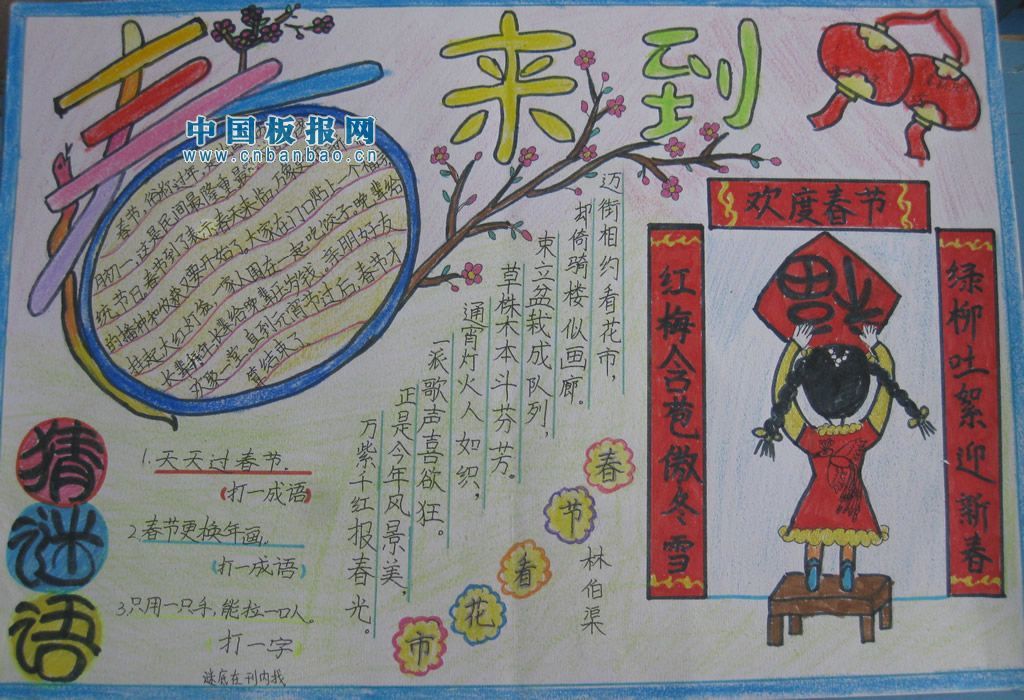 春来到
中国板报网
www.cnbanbao.cn
欢度春节
红梅含苞傲冬雪
绿柳吐絮迎新春
福
春节，俗称过年，
初一，这是民间最隆重
统节日。春节到了表示春天来临，
的播种和收获又要开始了。大家在门口贴上
挂起大红灯笼，一家人围在一起吃饺子。晚辈给
长辈拜年，长辈给晚辈压岁钱。亲朋好友
欢聚一堂。直到元宵节过后，春节才
算结束了
春节看花市
林伯渠
迈街相约看花市，
却倚骑楼似画廊。
束立盆栽成队列，
草株木本斗芬芳。
通宵灯火人如织，
一派歌声喜欲狂。
正是今年风景美，
万紫千红报春光。
猜谜语
1.天天过春节。
(打一成语)
2.春节更换年画。
(打一成语)
3.只用一只手，能拉一口人。
打一字
谜底在刊内找